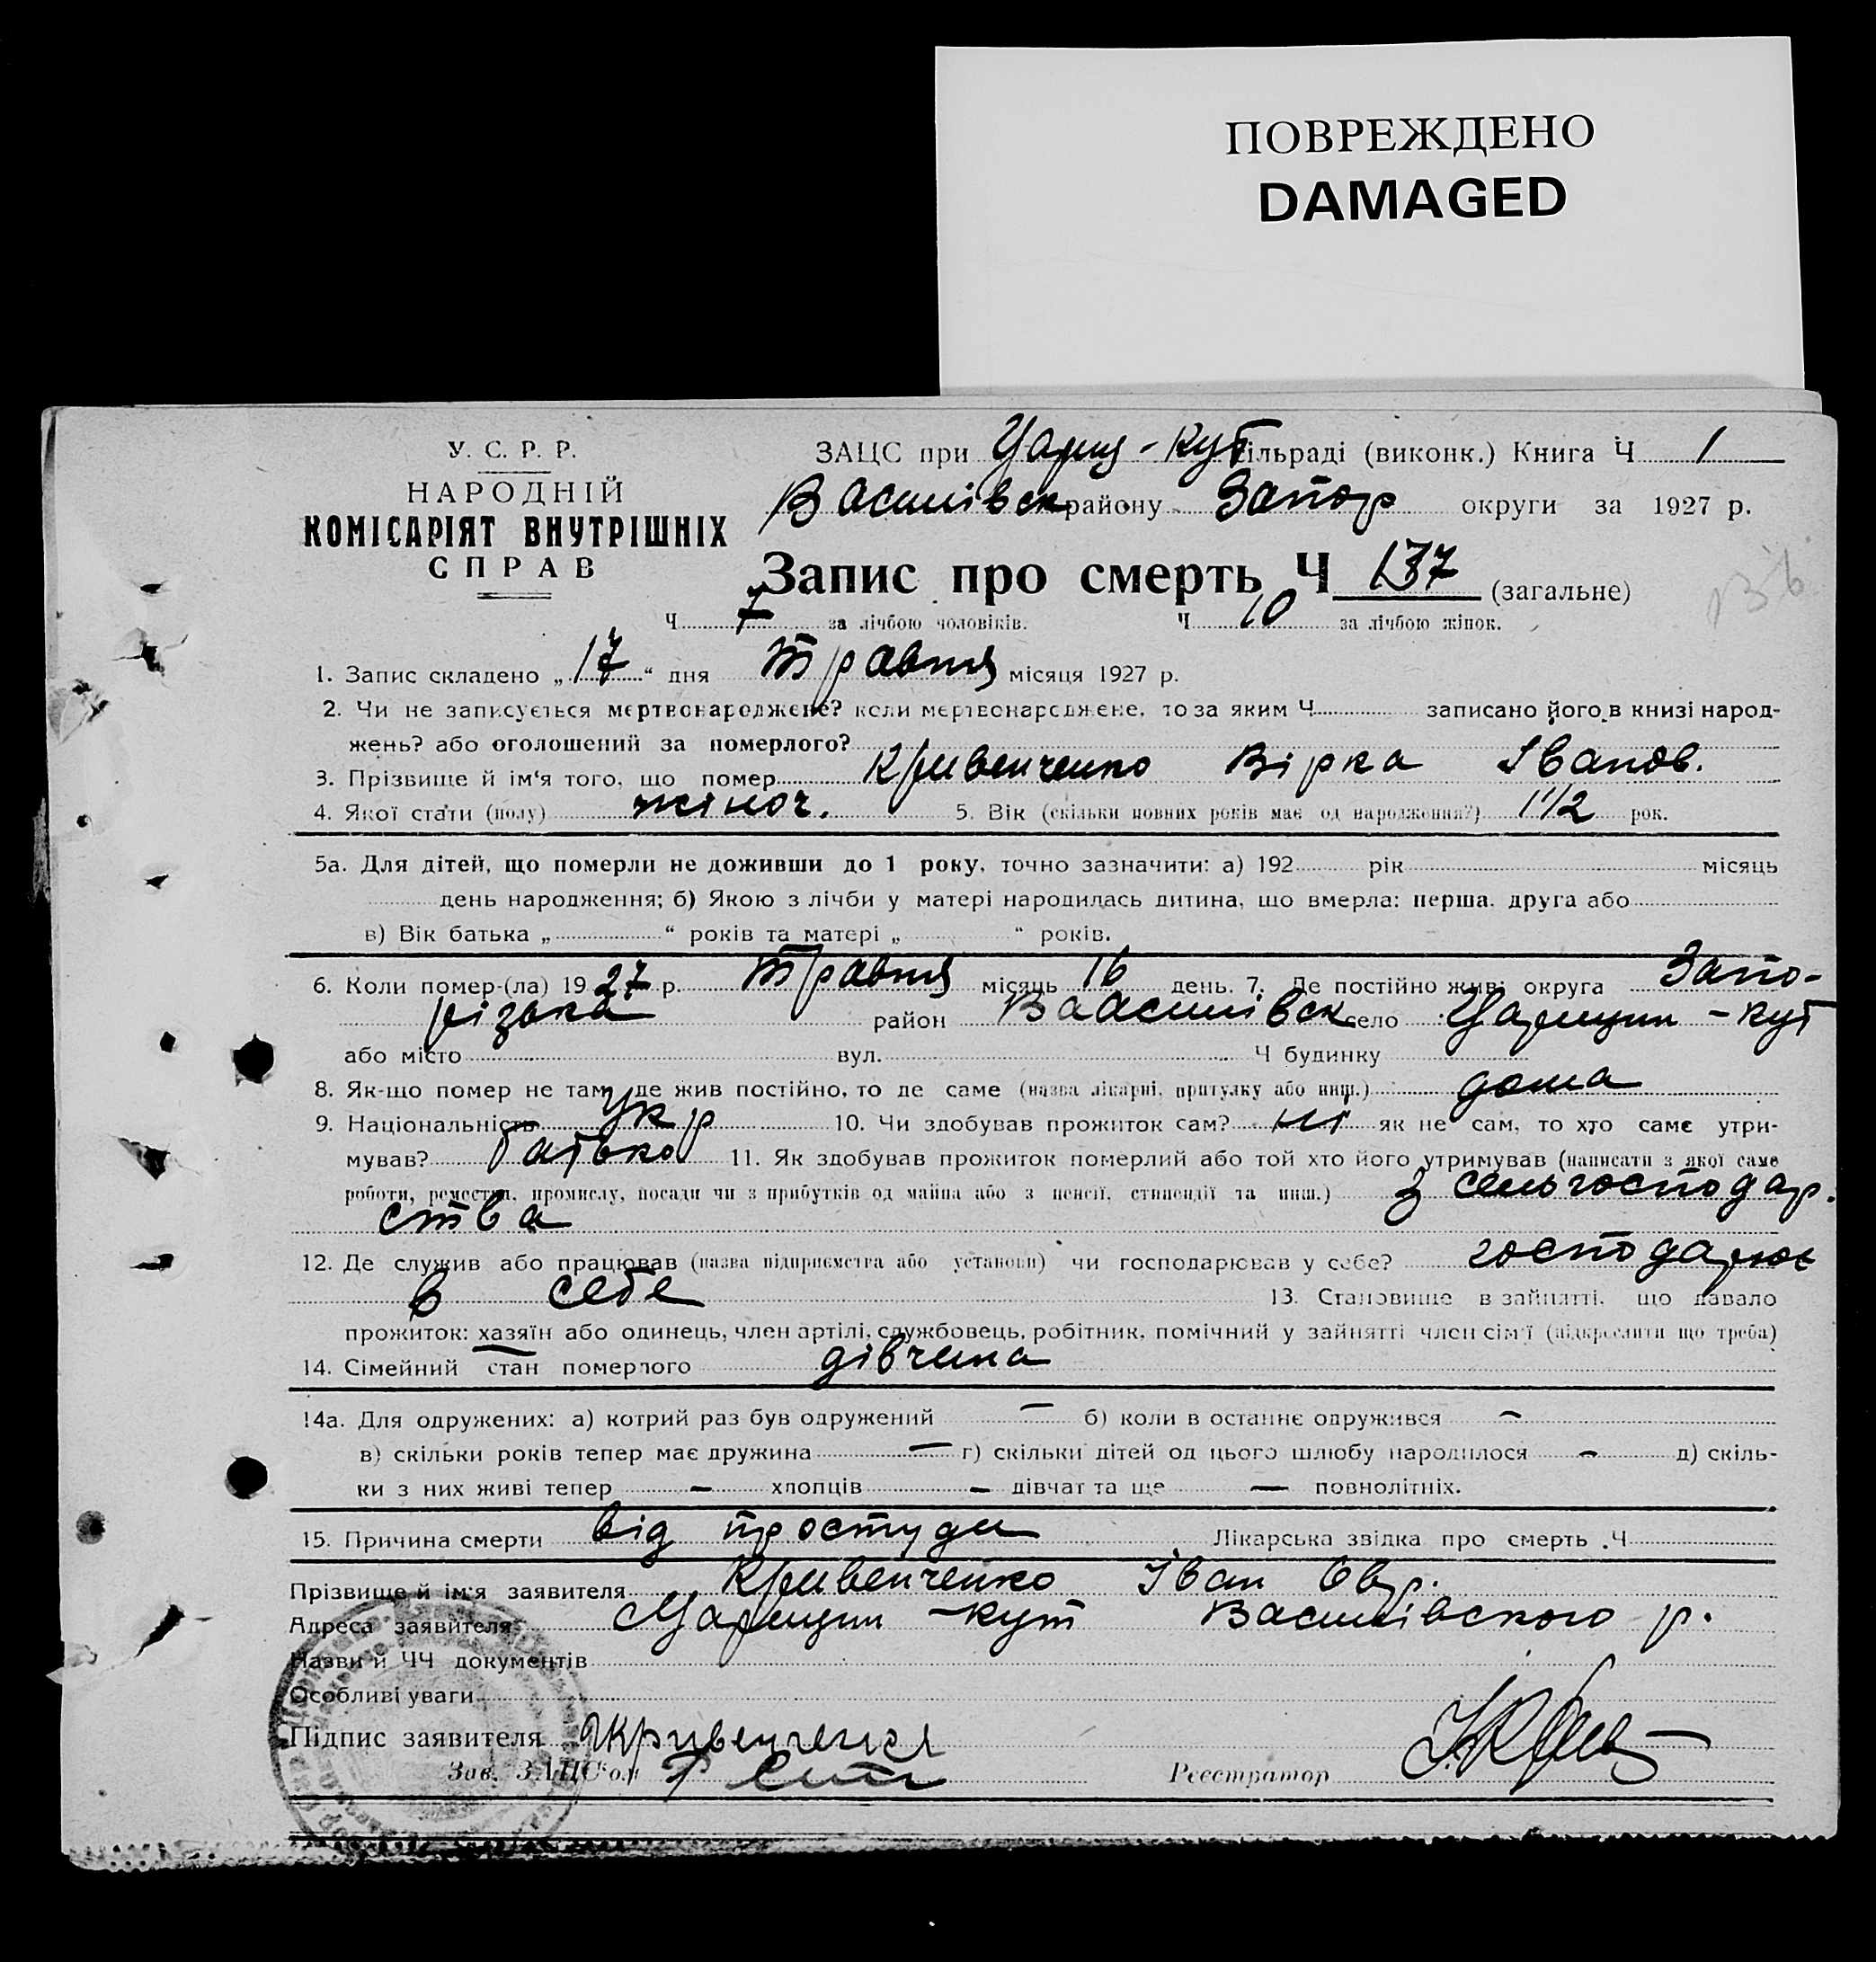 ПОВРЕЖДЕНО
DAMAGED
У. С. Р. Р.
НАРОДНІЙ
КОМІСАРІЯТ ВНУТРІШНІХ
СПРАВ
ЗАЦС при Цариц-Кут сільраді (виконк.) Книга Ч 1
Василівск району Запор округи за 1927 р.
Запис про смерть Ч 137 (загальне)
136
Ч 7 за лічбою чоловіків. Ч 10 за лічбою жінок.
1. Запис складено „17“ дня травня місяця 1927 р.
2. Чи не записується мертвонароджене? коли мертвонароджене, то за яким Ч записано його в книзі народ-
жень? або оголошений за померлого?
3. Прізвище й ім'я того, що помер Кривенченко Вірка Іванов.
4. Якої стати (полу) жіноч. 5. Вік (скільки повних років має од народження?) 1 1/2 рок.
5а. Для дітей, що померли не доживши до 1 року, точно зазначити: а) 192 рік місяць
день народження; б) Якою з лічби у матері народилась дитина, що вмерла: перша, друга або
в) Вік батька „ “ років та матері „ “ років.
6. Коли помер-(ла) 1927 р. травня місяць 16 день. 7. Де постійно жив: округа Запо-
різька район Ваасилівск село Царицин-Кут
або місто вул. Ч будинку
8. Як-що помер не там, де жив постійно, то де саме (назва лікарні, притулку або инш.) дома
9. Національність укр 10. Чи здобував прожиток сам? ні як не сам, то хто саме утри-
мував? батько 11. Як здобував прожиток померлий або той хто його утримував (написати з якої саме
роботи, ремества, промислу, посади чи з прибутків од майна або з пенсії, стипендії та инш.) з сельгосподар.
ства
12. Де служив або працював (назва підприємства або установи) чи господарював у себе? господарює
в себе 13. Становище в зайнятті, що давало
прожиток: хазяїн або одинець, член артілі, службовець, робітник, помічний у зайнятті член сім'ї (підкреслити що треба)
14. Сімейний стан померлого дівчина
14а. Для одружених: а) котрий раз був одружений — б) коли в останнє одружився —
в) скільки років тепер має дружина — г) скільки дітей од цього шлюбу народилося — д) скіль-
ки з них живі тепер — хлопців — дівчат та ще — повнолітніх.
15. Причина смерти від простуди Лікарська звідка про смерть Ч
Прізвище й ім'я заявителя Кривенченко Іван Овр.
Адреса заявителя Царицин-Кут Василівского р.
Назви й ЧЧ документів
Особливі уваги
Підпис заявителя Якривенченко
Зав. ЗАЦС'ом Реєстратор